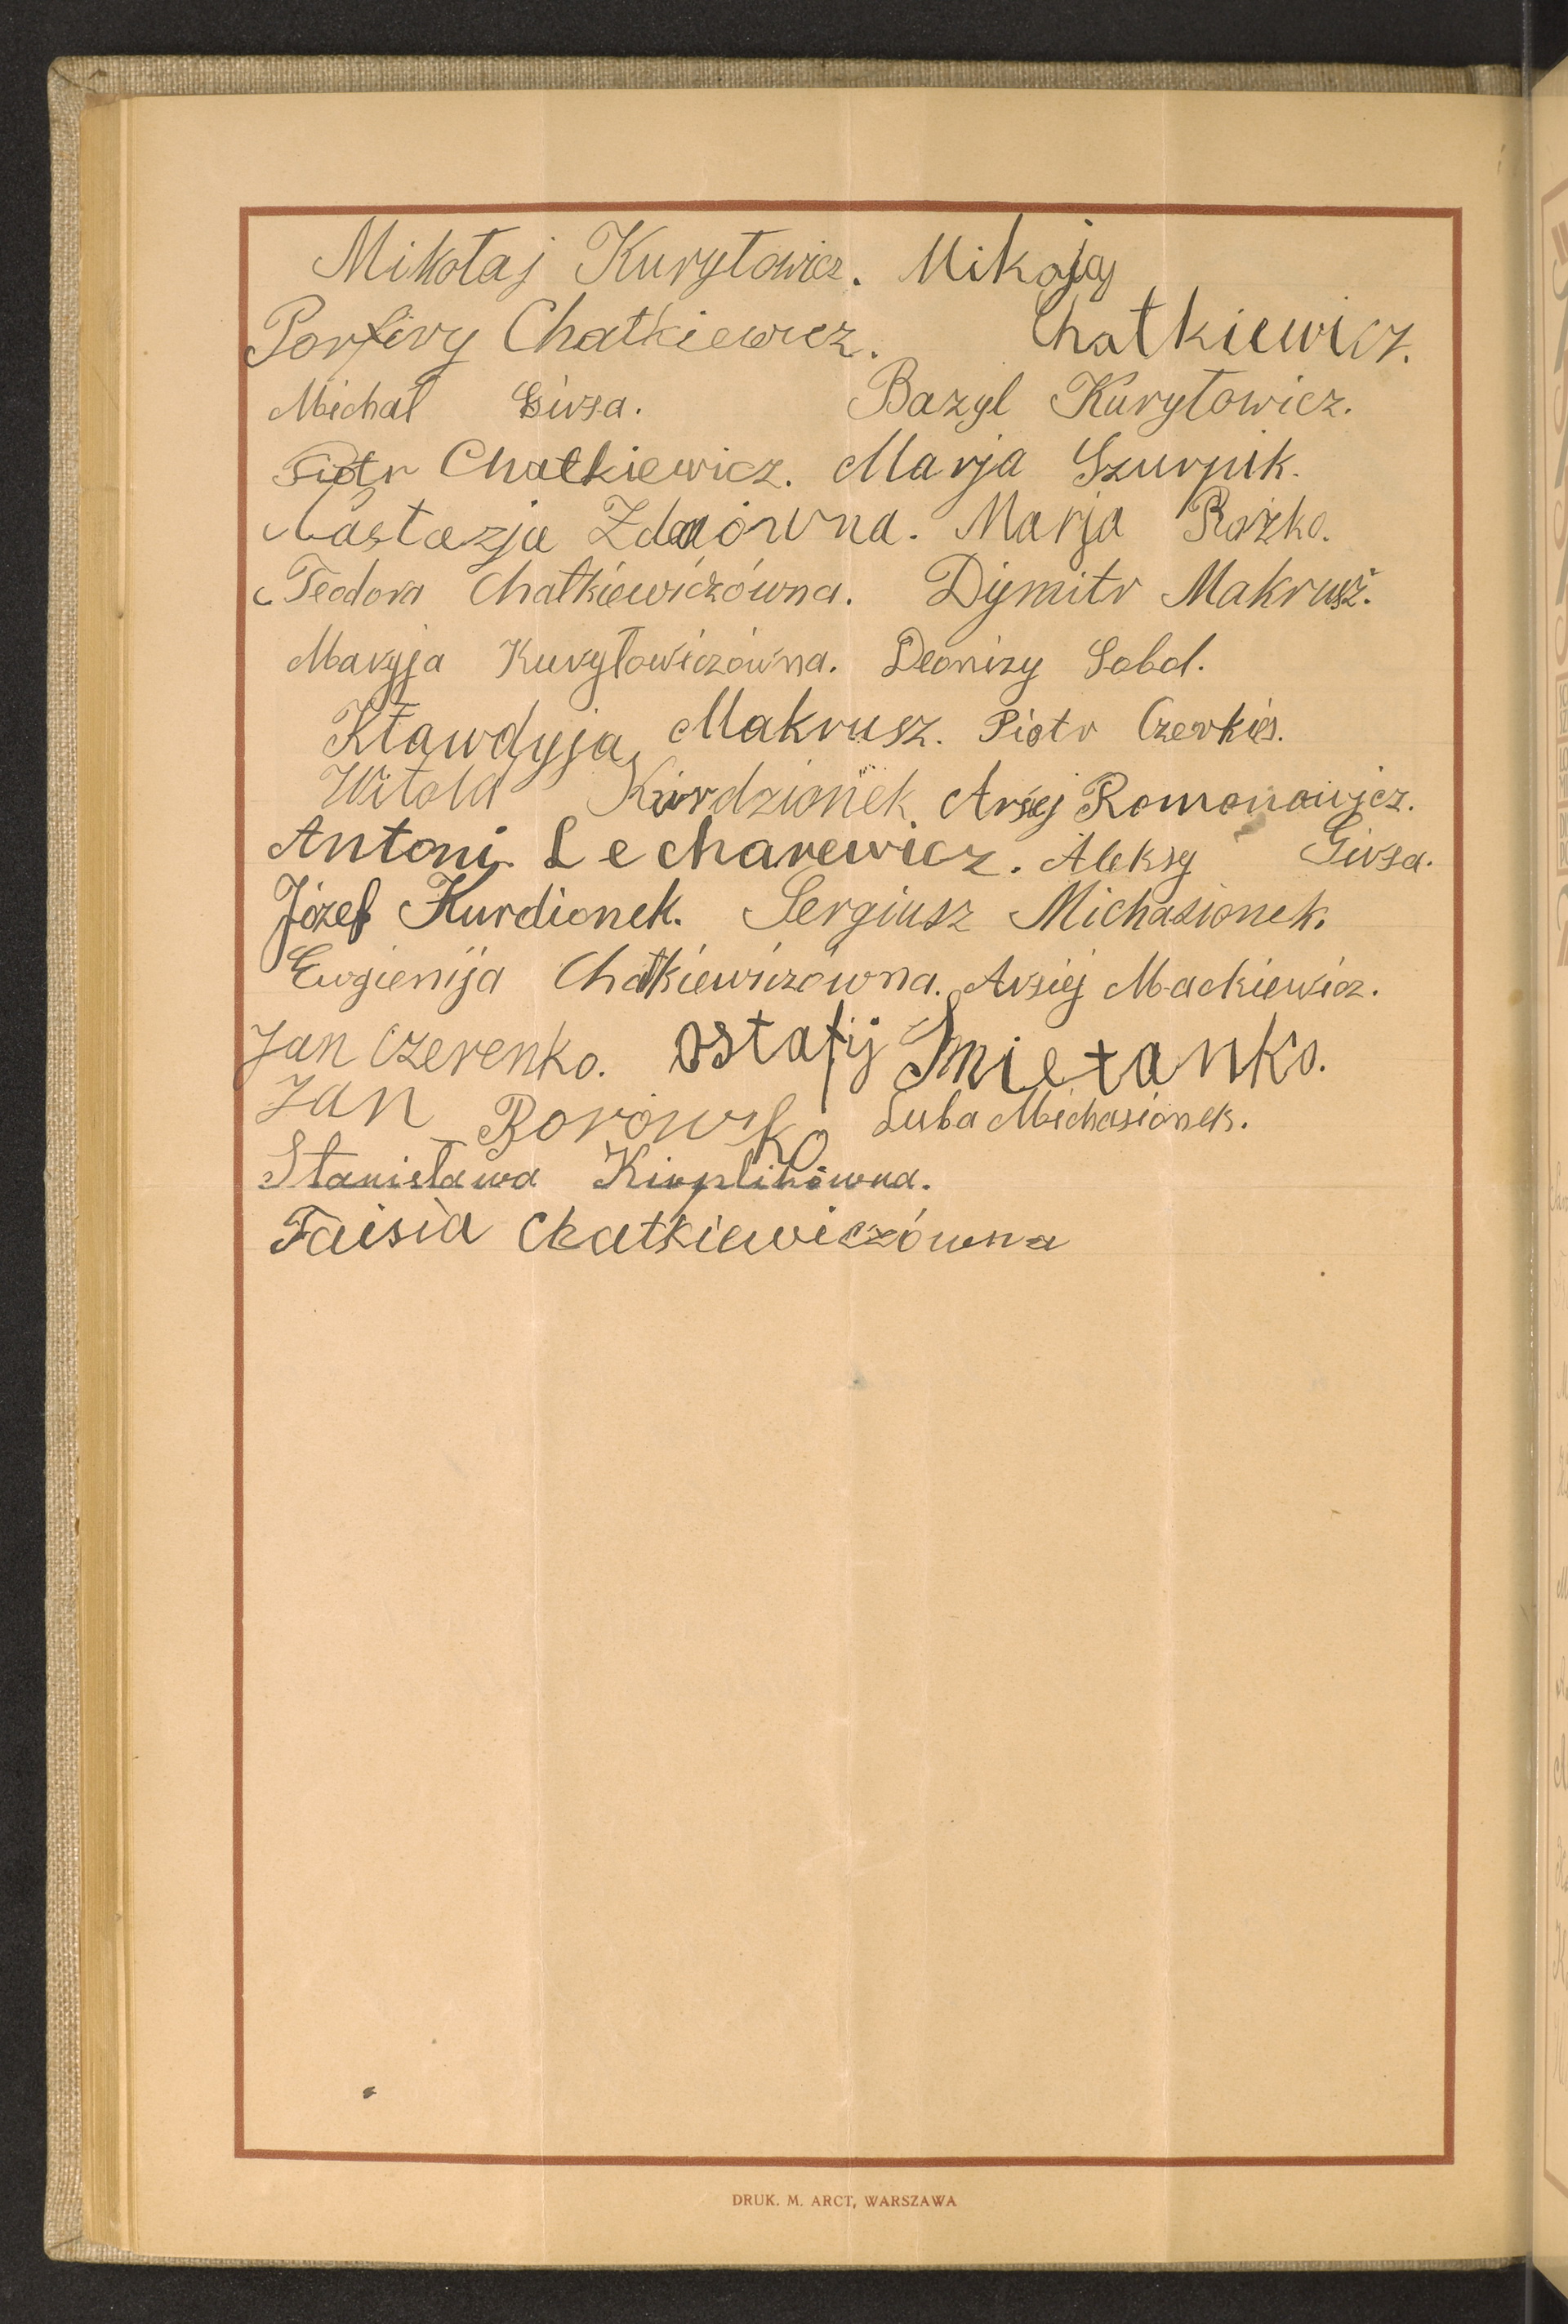 Mikołaj Kuryłowicz. Mikojay
Porfiry Chatkiewicz. Chatkiewicz.
Michał Girsa. Bazyl Kuryłowicz.
Piotr Chatkiewicz. Marja Szurpik.
Nastazja Marja Rożko.
Teodora Chatkiewiczówna. Dymitr Makrusz.
Maryja Kuryłowiczówna. Deonizy Sobol.
Kławdyja Makrusz. Piotr Czerkies.
Witold Kurdzionek. Arsiej Romanowicz.
Antoni Lecharewicz. Aleksy Girsa.
Józef Kurdionek. Sergiusz Michasionek.
Ewgienija Chatkiewiczówna. Arsiej Mackiewicz.
Jan Czerenko. Ostafij Śmietanko.
Jan Borowko Luba Michasionek.
Stanisława Kirplikówna.
Taisia Chatkiewiczówna
DRUK. M. ARCT, WARSZAWA